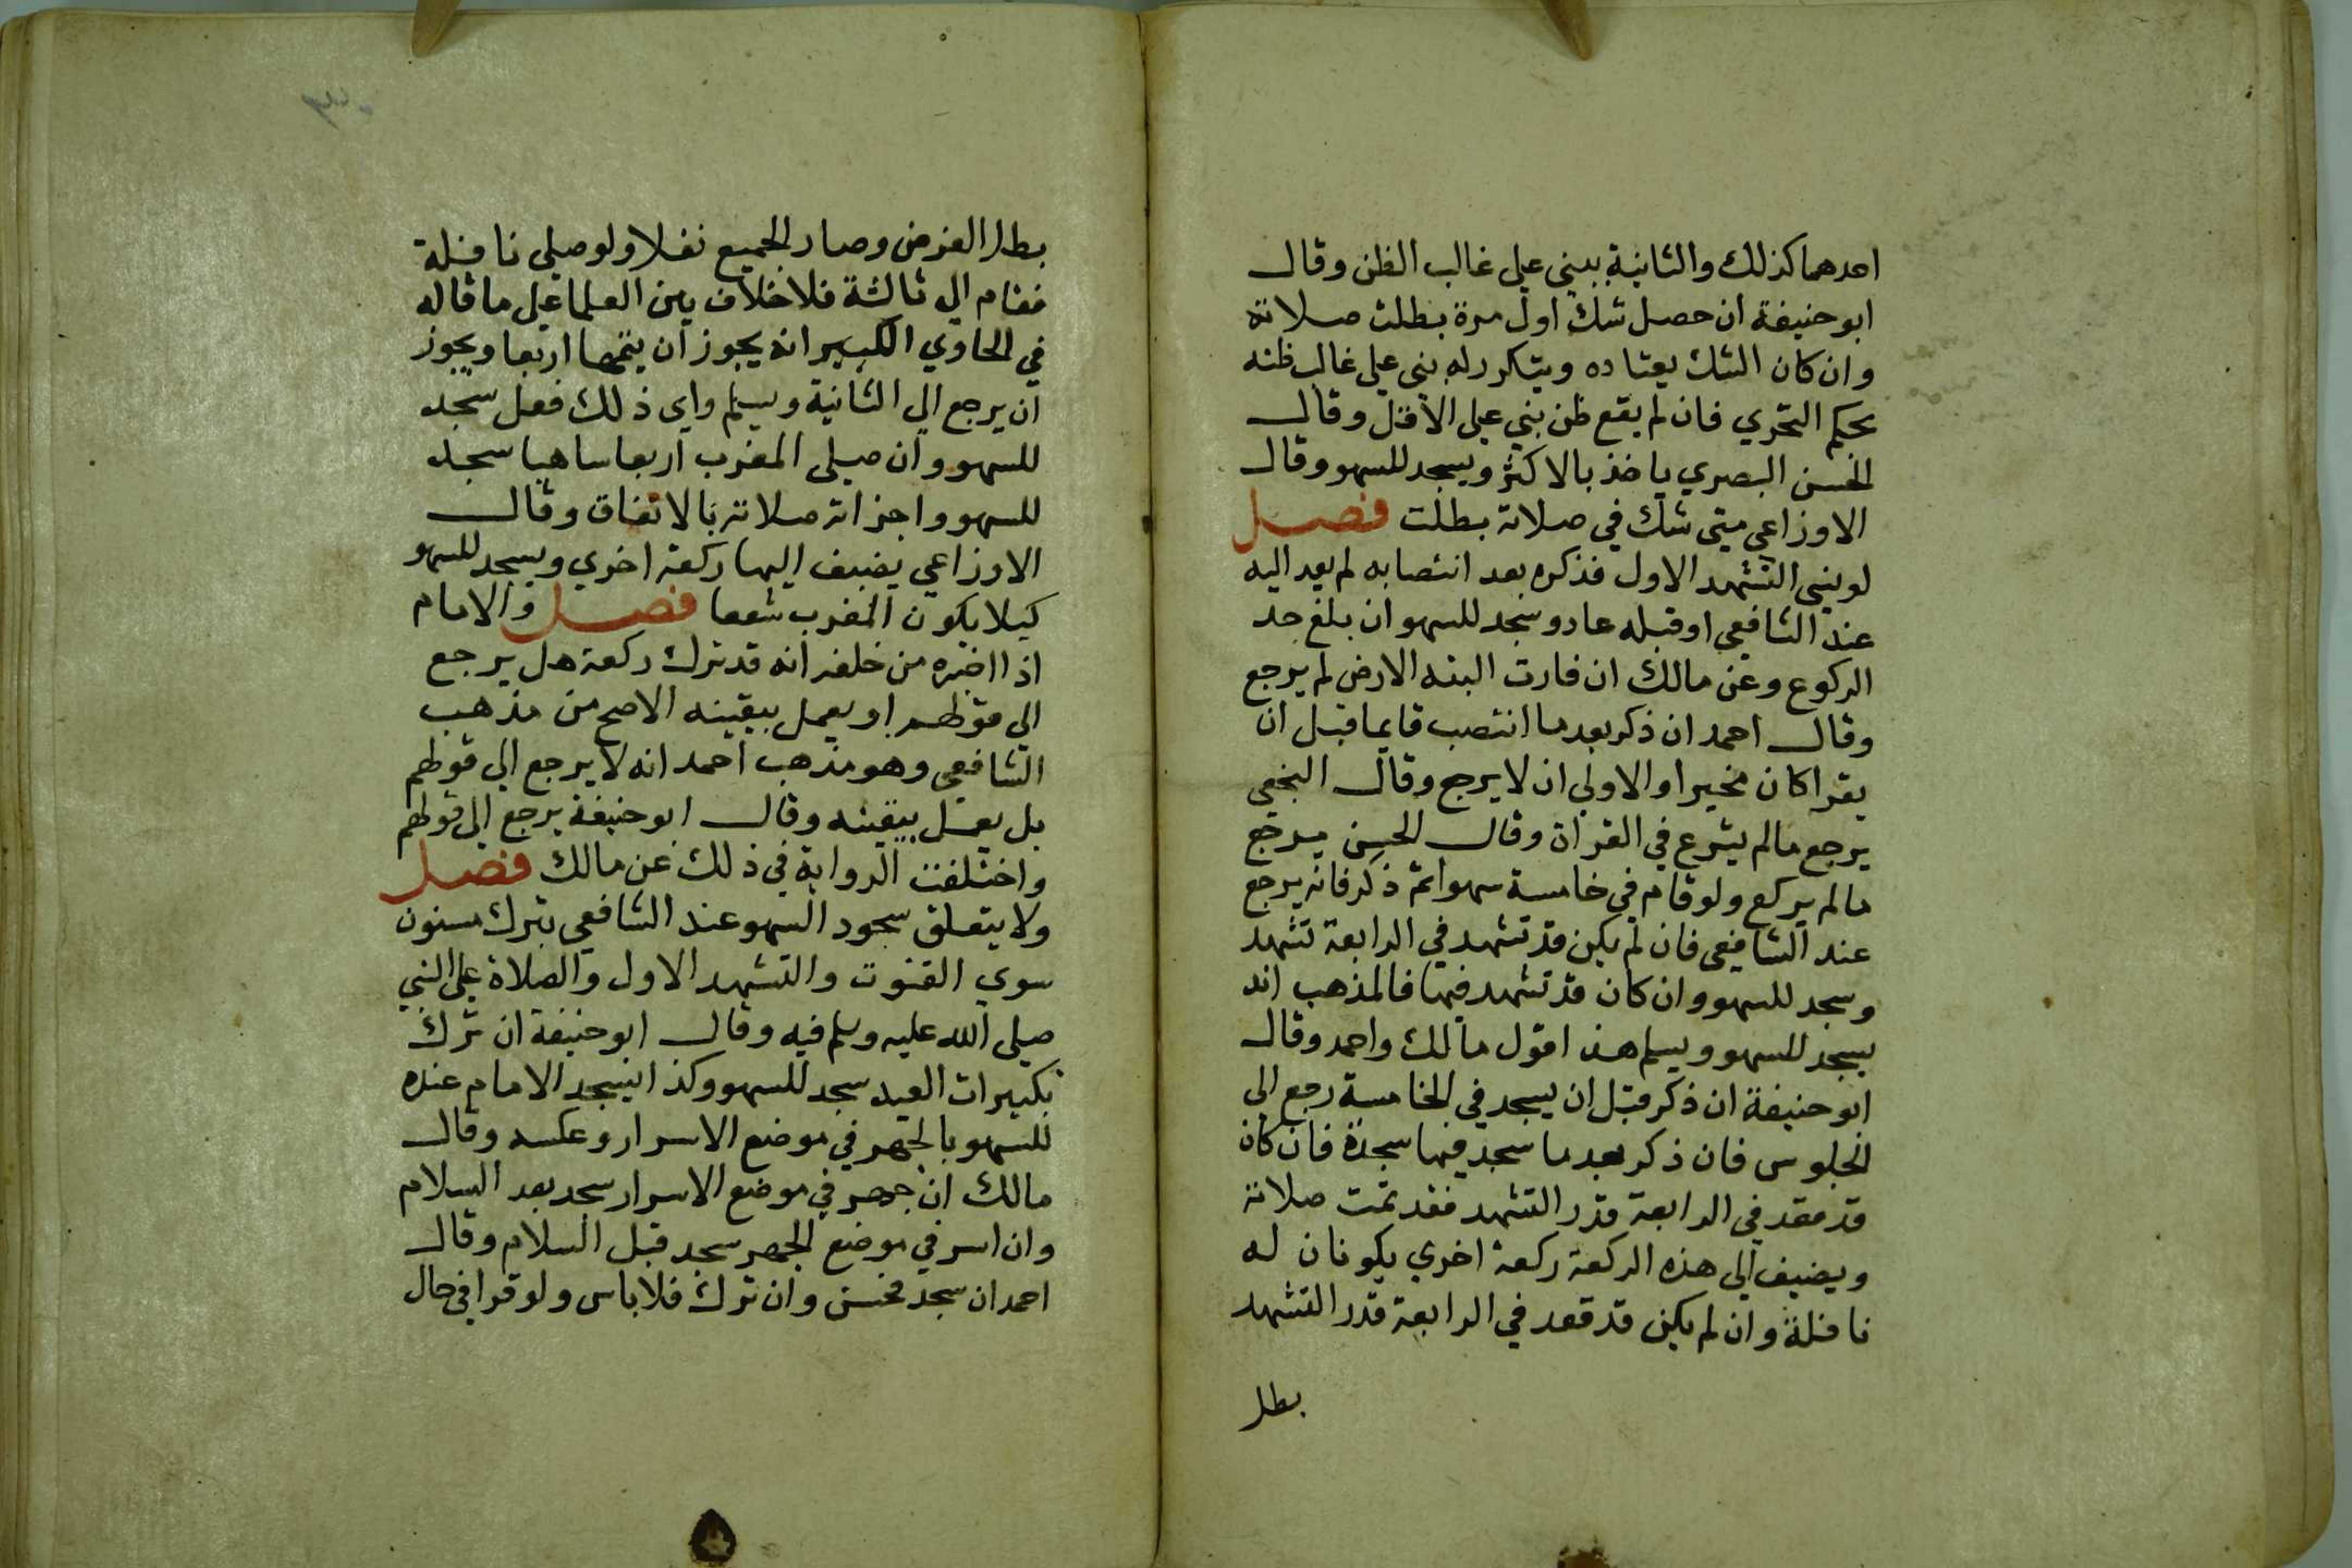 احدهما كذلك والثانية يبني علي غالب الظن وقال
ابو حنيفة ان حصل شك اول مرة بطلت صلاته
وان كان الشك يعتاده ويتكرر له بني علي غالب ظنه
بحكم التحري فان لم يقع ظن بني علي الاقل وقال
الحسن البصري ياخذ بالاكثر ويسجد للسهو وقال
الاوزاعي متي شك في صلاته بطلت فصل
لو نسي التشهد الاول فذكره بعد انتصابه لم يعد اليه
عند الشافعي او قبله عاد وسجد للسهو ان بلغ حد
الركوع وعن مالك ان فارت اليته الارض لم يرجع
وقال احمد ان ذكر بعد ما انتصب قايما قبل ان
يقرا كان مخيرا والاولي ان لا يرجع وقال النخعي
يرجع مالم يشرع في القراة وقال الحسن يرجع
مالم يركع ولو قام في خامسة سهوا ثم ذكر فانه يرجع
عند الشافعي فان لم يكن قد تشهد في الرابعة تشهد
وسجد للسهو وان كان قد تشهد فيها فالمذهب انه
يسجد للسهو ويسلم هذا قول مالك واحمد وقال
ابو حنيفة ان ذكر قبل ان يسجد في الخامسة رجع الي
الجلوس فان ذكر بعد ما سجد فيها سجدة فان كان
قد قعد في الرابعة قدر التشهد فقد تمت صلاته
ويضيف الي هذه الركعة ركعة اخري يكونان له
نافلة وان لم يكن قد قعد في الرابعة قدر التشهد
بطل
بطل الفرض وصار الجميع نفلا ولو صلي نافلة
فقام الي ثالثة فلا خلاف بين العلما علي ما قاله
في الحاوي الكبير انه يجوز ان يتمها اربعا ويجوز
ان يرجع الي الثانية ويسلم واي ذلك فعل سجد
للسهو وان صلي المغرب اربعا ساهيا سجد
للسهو واجزاته صلاته بالاتفاق وقال
الاوزاعي يضيف اليها ركعة اخري ويسجد للسهو
كيلا يكون المغرب شفعا فصل والامام
اذا اخبره من خلفه انه قد ترك ركعة هل يرجع
الي قولهم او يعمل بيقينه الاصح من مذهب
الشافعي وهو مذهب احمد انه لا يرجع الي قولهم
بل يعمل بيقينه وقال ابو حنيفة يرجع الي قولهم
واختلفت الرواية في ذلك عن مالك فصل
ولا يتعلق سجود السهو عند الشافعي بترك مسنون
سوي القنوت والتشهد الاول والصلاة علي النبي
صلي الله عليه وسلم فيه وقال ابو حنيفة ان ترك
تكبيرات العيد سجد للسهو وكذا يسجد الامام عنده
للسهو بالجهر في موضع الاسرار وعكسه وقال
مالك ان جهر في موضع الاسرار سجد بعد السلام
وان اسر في موضع الجهر سجد قبل السلام وقال
احمد ان سجد فحسن وان ترك فلا باس ولو قرا في حال